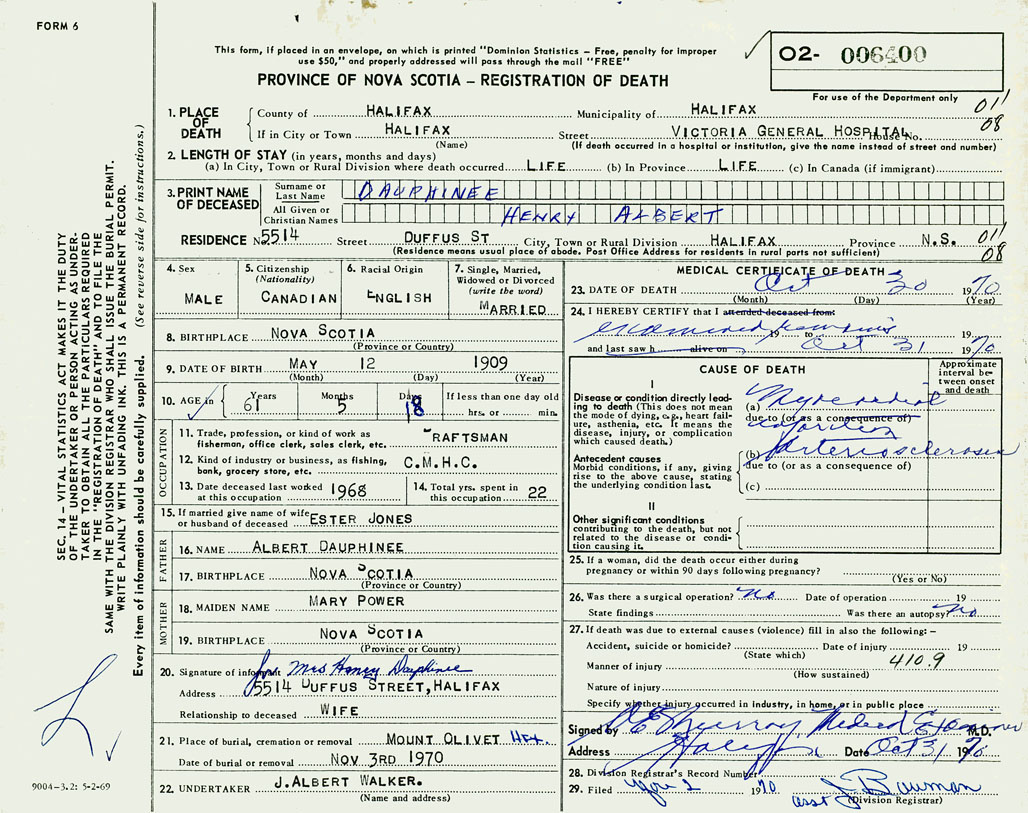 FORM 6
This form, if placed in an envelope, on which is printed "Dominion Statistics – Free, penalty for improper
use $50," and properly addressed will pass through the mail "FREE"
PROVINCE OF NOVA SCOTIA – REGISTRATION OF DEATH
02- 006400
For use of the Department only
011
08
1. PLACE OF DEATH
County of HALIFAX Municipality of HALIFAX
If in City or Town HALIFAX Street VICTORIA GENERAL HOSPITAL House No.
(Name) (If death occurred in a hospital or institution, give the name instead of street and number)
2. LENGTH OF STAY (in years, months and days)
(a) In City, Town or Rural Division where death occurred LIFE (b) In Province LIFE (c) In Canada (if immigrant)
3. PRINT NAME OF DECEASED
Surname or Last Name DAUPHINEE
All Given or Christian Names HENRY ALBERT
RESIDENCE No 5514 Street DUFFUS ST City, Town or Rural Division HALIFAX Province N.S. 011
08
(Residence means usual place of abode. Post Office Address for residents in rural parts not sufficient)
4. Sex
MALE
5. Citizenship
(Nationality)
CANADIAN
6. Racial Origin
ENGLISH
7. Single, Married,
Widowed or Divorced
(write the word)
MARRIED
8. BIRTHPLACE NOVA SCOTIA
(Province or Country)
9. DATE OF BIRTH MAY 12 1909
(Month) (Day) (Year)
10. AGE in Years 61 Months 5 Days 18 If less than one day old
hrs. or min.
OCCUPATION
11. Trade, profession, or kind of work as
fisherman, office clerk, sales clerk, etc. CRAFTSMAN
12. Kind of industry or business, as fishing,
bank, grocery store, etc. C.M.H.C.
13. Date deceased last worked
at this occupation 1968
14. Total yrs. spent in
this occupation 22
15. If married give name of wife
or husband of deceased ESTER JONES
FATHER
16. NAME ALBERT DAUPHINEE
17. BIRTHPLACE NOVA SCOTIA
(Province or Country)
MOTHER
18. MAIDEN NAME MARY POWER
19. BIRTHPLACE NOVA SCOTIA
(Province or Country)
20. Signature of informant for Mrs Henry Dauphinee
Address 5514 DUFFUS STREET, HALIFAX
Relationship to deceased WIFE
21. Place of burial, cremation or removal MOUNT OLIVET HFX.
Date of burial or removal NOV 3RD 1970
22. UNDERTAKER J. ALBERT WALKER.
(Name and address)
MEDICAL CERTIFICATE OF DEATH
23. DATE OF DEATH Oct 30 1970
(Month) (Day) (Year)
24. I HEREBY CERTIFY that I attended deceased from:
examined remains 19 to 19
and last saw h alive on Oct 31 1970
CAUSE OF DEATH
Approximate
interval be-
tween onset
and death
I
Disease or condition directly lead-
ing to death (This does not mean
the mode of dying, e.g., heart fail-
ure, asthenia, etc. It means the
disease, injury, or complication
which caused death.)
(a) Myocardial
due to (or as a consequence of)
infarction
Antecedent causes
Morbid conditions, if any, giving
rise to the above cause, stating
the underlying condition last.
(b) Arteriosclerosis
due to (or as a consequence of)
(c)
II
Other significant conditions
contributing to the death, but not
related to the disease or condi-
tion causing it.
25. If a woman, did the death occur either during
pregnancy or within 90 days following pregnancy?
(Yes or No)
26. Was there a surgical operation? No Date of operation 19
State findings Was there an autopsy? No
27. If death was due to external causes (violence) fill in also the following: –
Accident, suicide or homicide? Date of injury 19
(State which) 410.9
Manner of injury
(How sustained)
Nature of injury
Specify whether injury occurred in industry, in home, or in public place
Signed by Murray Medical Examiner M.D.
Address Halifax Date Oct 31 1970
28. Division Registrar's Record Number
29. Filed Nov 2 1970 asst J Bauman
(Division Registrar)
SEC. 14 – VITAL STATISTICS ACT MAKES IT THE DUTY
OF THE UNDERTAKER OR PERSON ACTING AS UNDER-
TAKER TO OBTAIN ALL THE PARTICULARS REQUIRED
IN THE "REGISTRATION OF DEATH" AND TO FILE THE
SAME WITH THE DIVISION REGISTRAR WHO SHALL ISSUE THE BURIAL PERMIT.
WRITE PLAINLY WITH UNFADING INK. THIS IS A PERMANENT RECORD.
Every item of information should be carefully supplied. (See reverse side for instructions.)
9004-3.2: 5-2-69